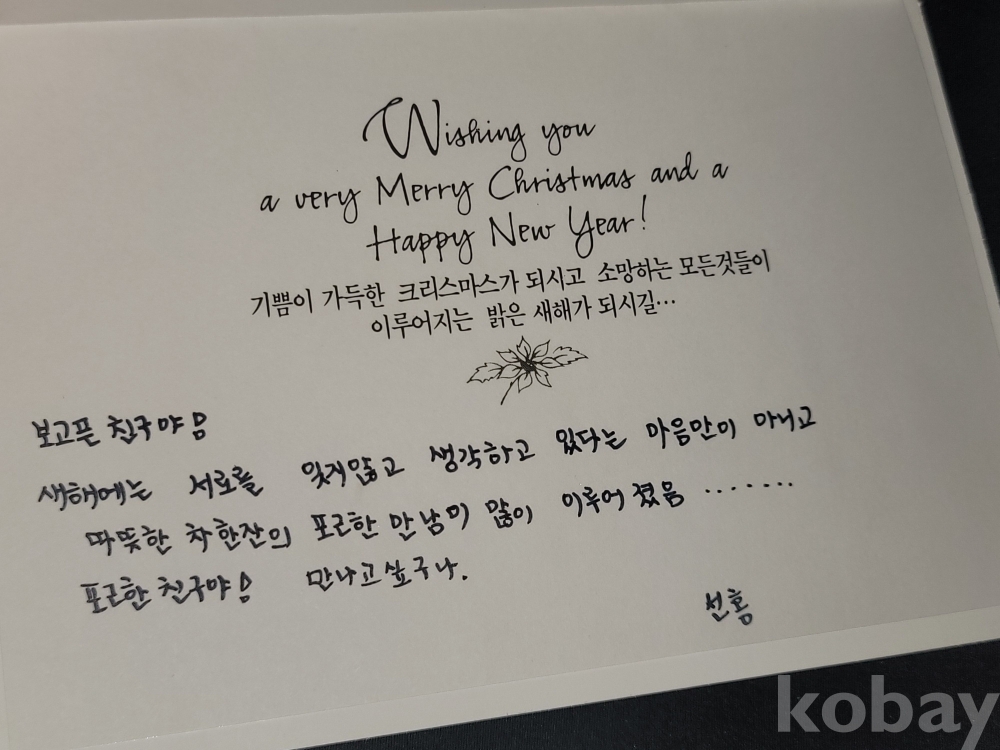 Wishing you
a very Merry Christmas and a
Happy New Year!
기쁨이 가득한 크리스마스가 되시고 소망하는 모든것들이
이루어지는 밝은 새해가 되시길...
보고픈 친구야!
새해에는 서로를 잊지않고 생각하고 있다는 마음만이 아니고
따뜻한 차 한잔의 포근한 만남이 많이 이루어 졌음 ........
포근한 친구야! 만나고 싶구나.
선홍
kobay